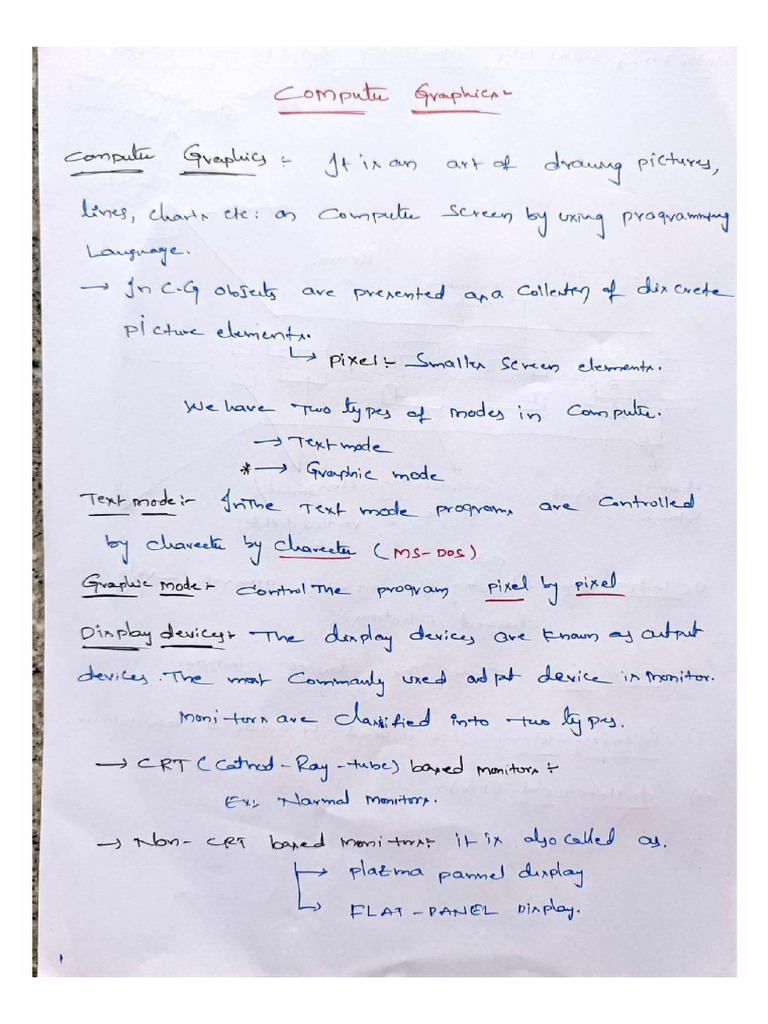 Computer Graphics:-
Computer Graphics :- It is an art of drawing pictures,
lines, charts etc: on Computer Screen by using programming
Language.
→ In C.G objects are presented as a Collection of discrete
picture elements.
↳ pixel:- Smaller Screen elements.
We have Two types of modes in Computer.
→ Text mode
*→ Graphic mode
Text mode:- In The Text mode programs are Controlled
by charecter by charecter (MS-DOS)
Graphic mode:- control The program pixel by pixel
Display devices:- The display devices are known as output
devices. The most Commanly used output device is monitor.
Monitors are Classified into two types.
→ CRT (Cathod-Ray-tube) based monitors :-
Ex:, Normal monitors.
→ Non-CRT based monitors:- it is also called as.
→ plazma pannel display
↳ FLAT-PANEL Display.